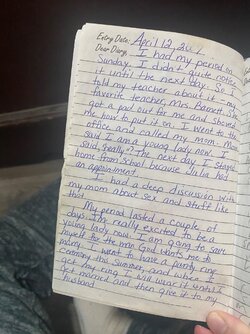 Entry Date: April 12, 201
Dear Diary, I had my period on
Sunday. I didn't quite notice
it until the next day. So I
told my teacher about it - my
favorite teacher, Mrs. Barnett. She
got a pad out for me and showed
me how to put it on. I went to the
office and called my mom. Mom
said I am a young lady now. I
said, "really?" The next day I stayed
home from school because Julia had
an appointment.
I had a deep discussion with
my mom about sex and stuff like
that.
My period lasted a couple of
days. I'm really excited to be a
young lady now. I am going to save
myself for the man God wants me to
marry. I want to have a purity ring
Cermony this Summer, and like after I
get my ring I will wear it until I
get married and then give it to my
husband.